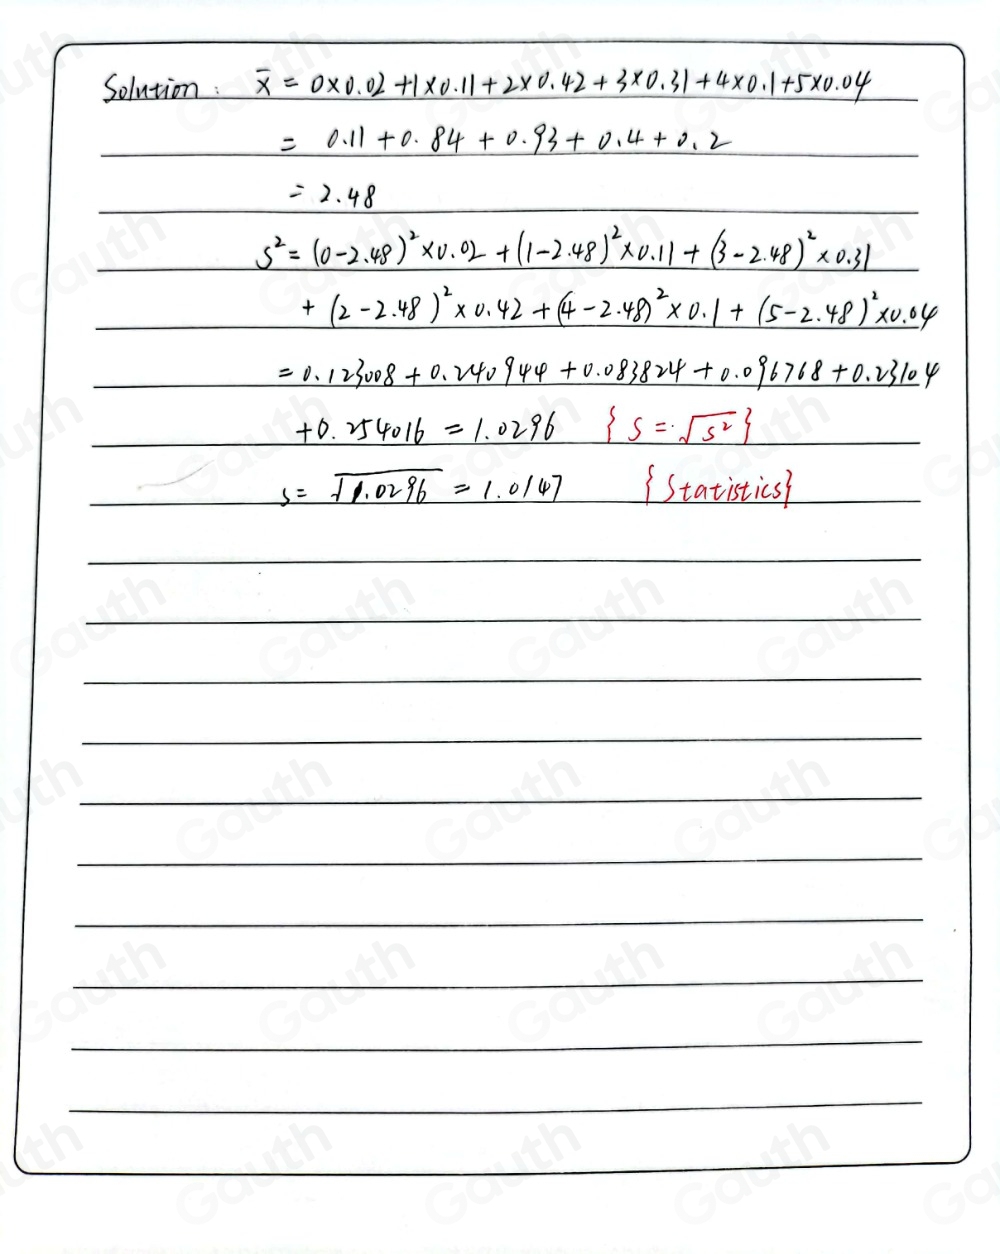 Solution: x̄ = 0×0.02 +1×0.11+2×0.42+3×0.31+4×0.1+5×0.04
= 0.11 +0.84 + 0.93 + 0.4 + 0.2
= 2.48
S² = (0-2.48)²×0.02 +(1-2.48)²×0.11 + (3-2.48)²×0.31
+ (2-2.48)²×0.42 +(4-2.48)²×0.1 + (5-2.48)²×0.04
= 0.123008 + 0.240944 +0.083824 + 0.096768 +0.23104
+0.254016 = 1.0296 {S = √S²}
s = √1.0296 = 1.0147 {Statistics}